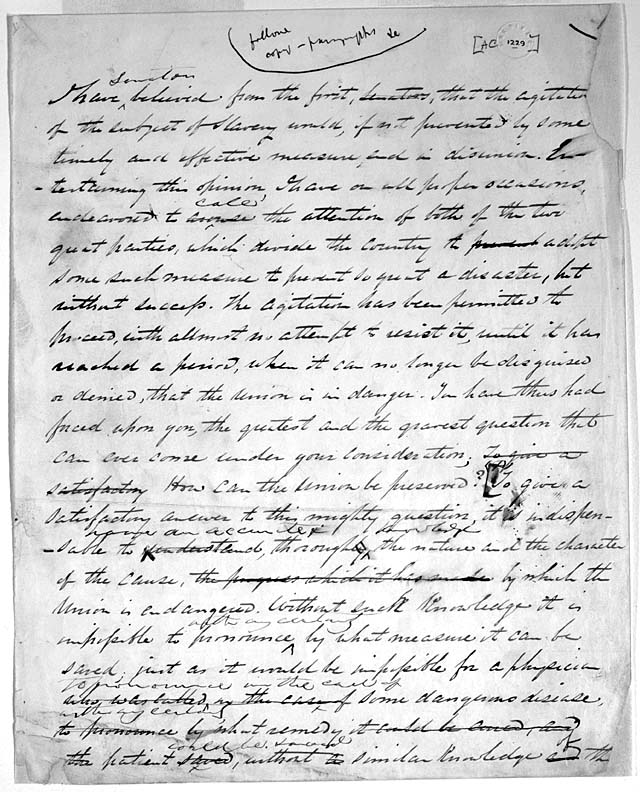 follow
copy - paragraphs &c
[AC 1229]
Senators
I have, believed from the first, senators, that the agitation
of the subject of Slavery would, if not prevented by some
timely and effective measure, end in disunion. En-
-tertaining this opinion I have on all proper occasions,
call
endeavored to arouse the attention of both of the two
great parties, which divide the country to prevent adopt
some such measure to prevent so great a disaster, but
without success. The agitation has been permitted to
proceed, with allmost no attempt to resist it, until it has
reached a period, when it can no longer be disguised
or denied, that the Union is in danger. You have thus had
forced upon you, the greatest and the gravest question that
can ever come under your consideration; To give a
satisfactory How can the Union be preserved? To give a
satisfactory answer to this mighty question, it is indispen-
have an accurate & knowledge
-sable to understand, thorough the nature and the character
of the cause, the progress which it has made by which the
Union is endangered. Without such Knowledge it is
with any certainty
impossible to pronounce, by what measure it can be
saved, just as it would be impossible for a physician
to pronounce in the case of
who was called, in the case of some dangerous disease,
with any certainty
to pronounce by what remedy it could be cured, and
could be saved
the patient saved, without to similar Knowledge of the